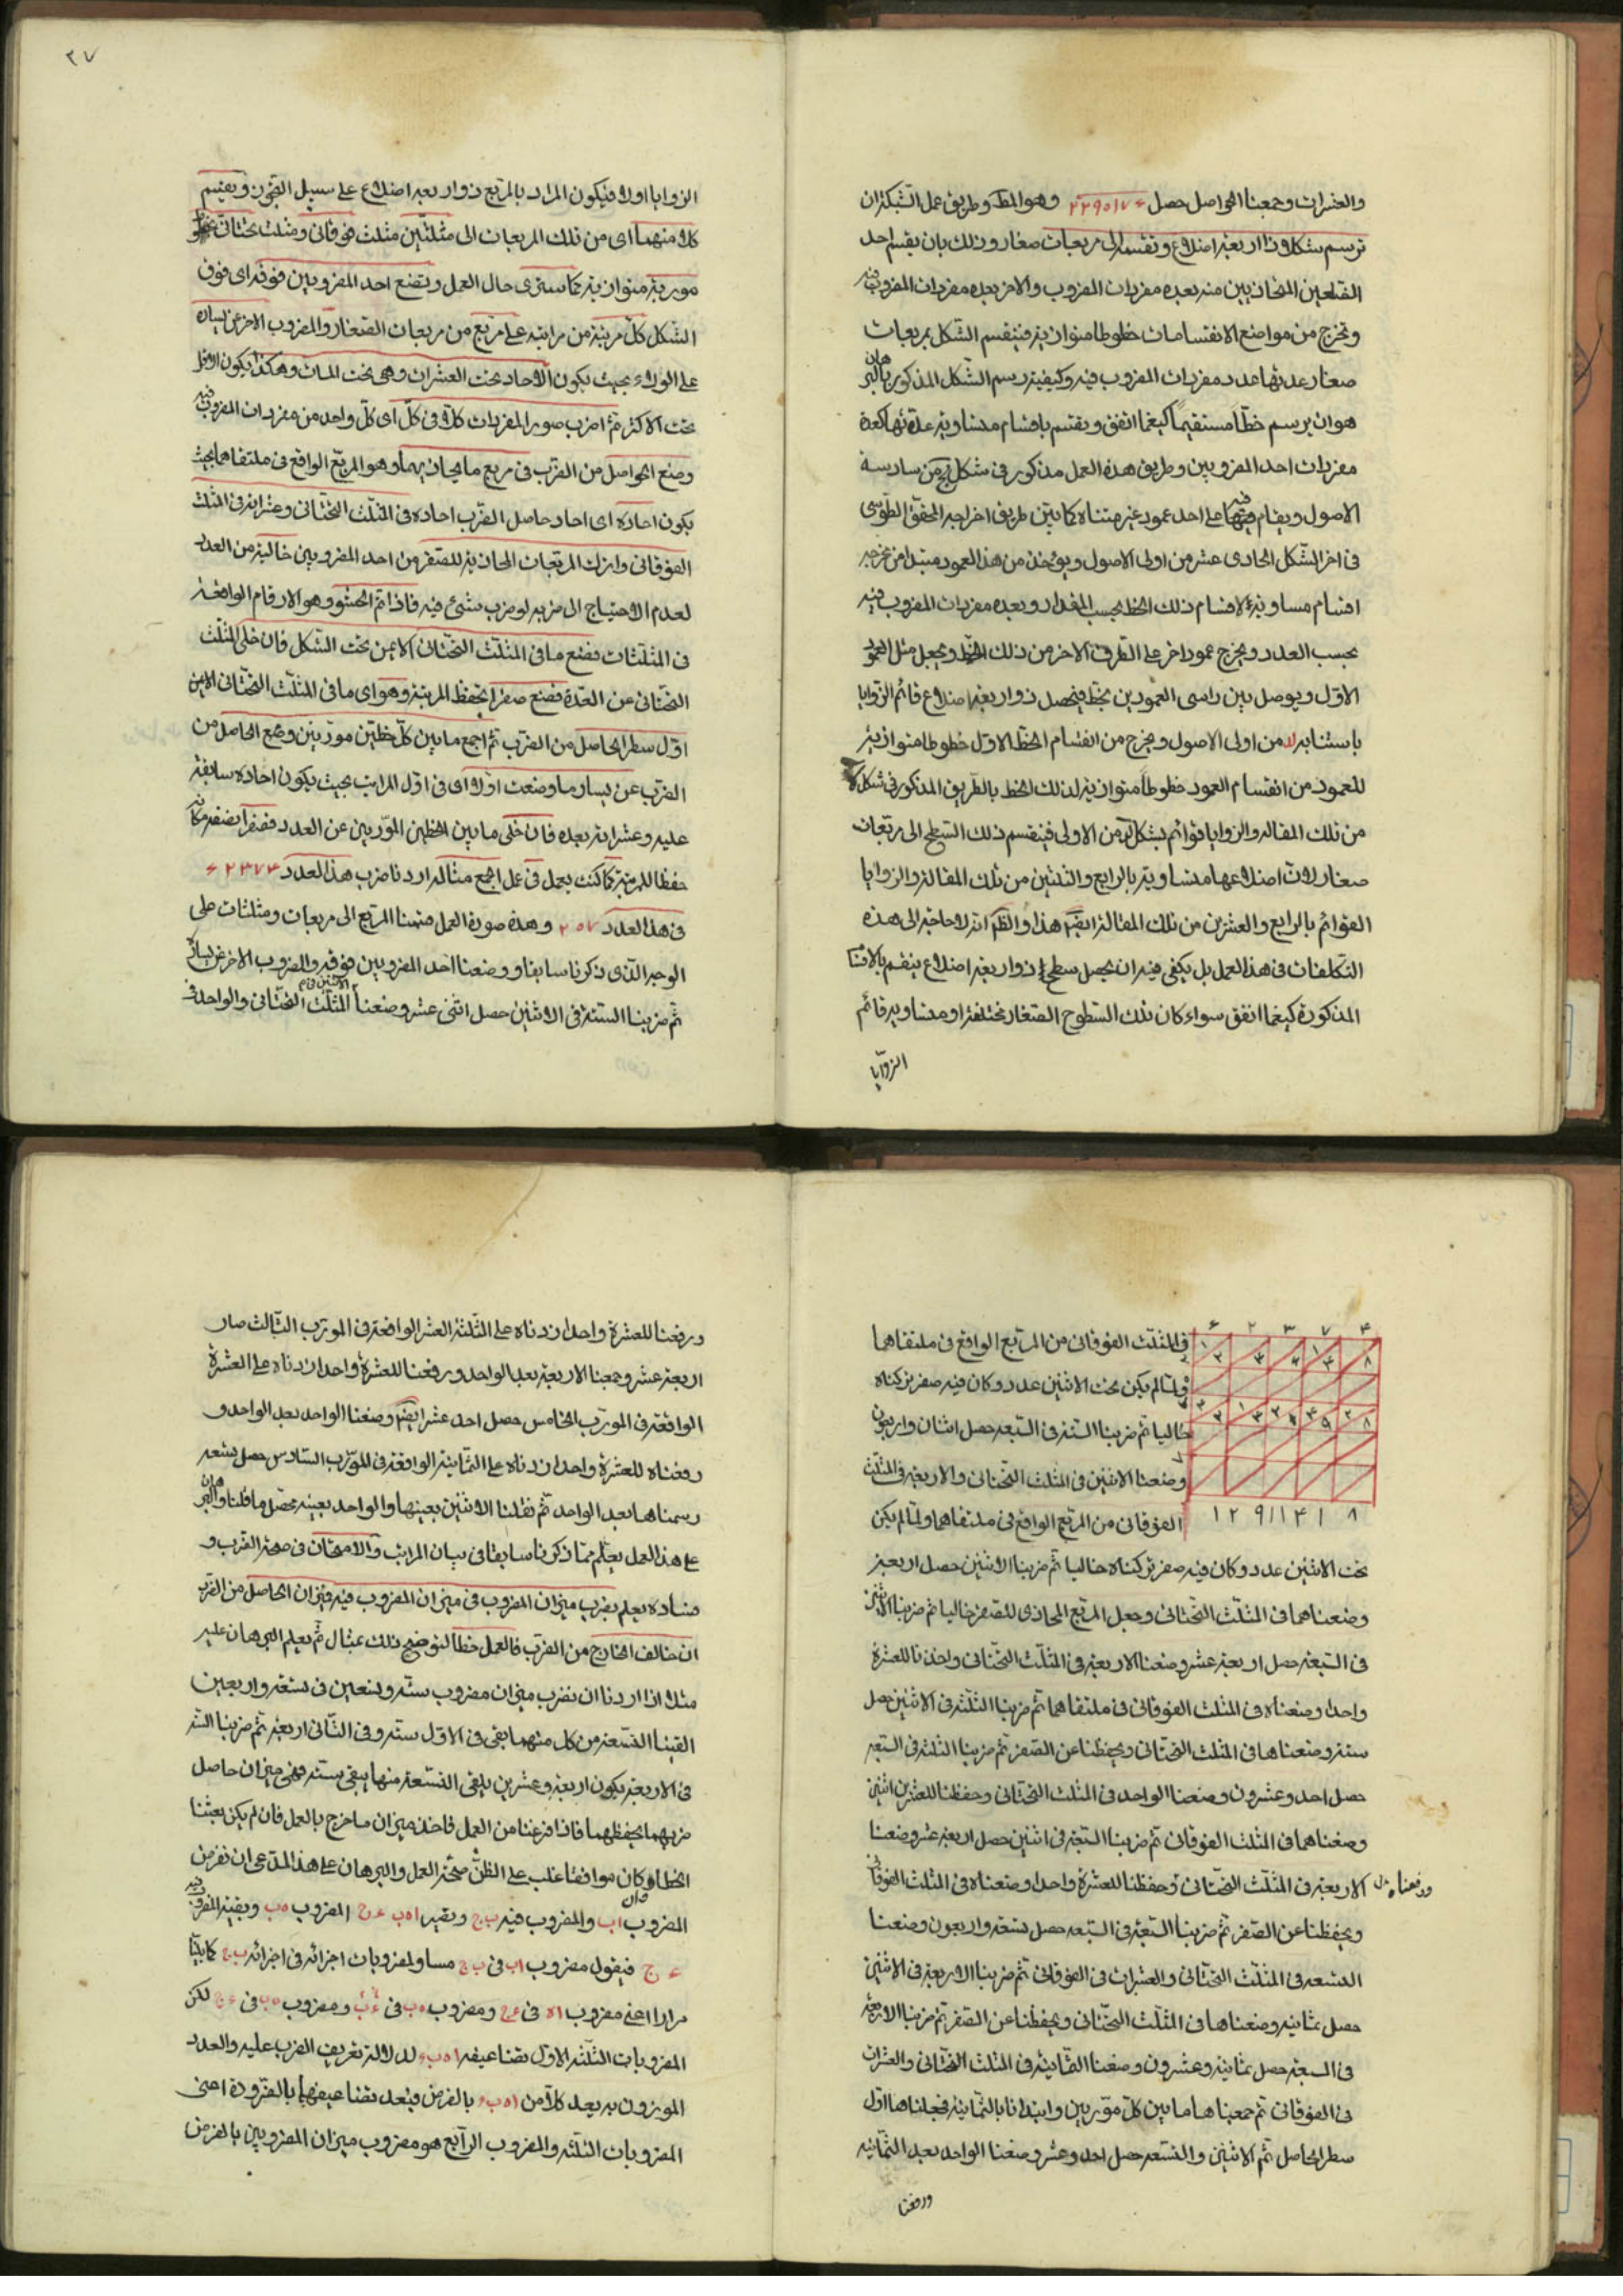 والعشرات وجمعنا الحواصل حصل وهو المط وطريق عمل الشبكة ان
ترسم شكلا ذا اربعة اضلاع وتقسمه الى مربعات صغار وذلك بان يقسم احد
الضلعين المتحاذيين منه بعده مفردات المضروب والاخر بعده مفردات المضروب فيه
ويخرج من مواضع الانقسامات خطوطا متوازية فينقسم الشكل بمربعات
صغار عدتها عدد مفردات المضروب فيه وكيفية رسم الشكل المذكور بالبرهان
هو ان يرسم خطا مستقيما كيفما اتفق ويقسم باقسام متساوية عدتها كعدة
مفردات احد المضروبين وطريق هذه العمل مذكور في شكل من سادسة
الاصول ويقام على احد عمود غير متناه كما بين طريق اخراجه المحقق الطوسى
فى اخر الشكل الحادى عشر من اولى الاصول ويؤخذ من هذا العمود مبتدا من مخرجه
اقسام مساوية لاقسام ذلك الخط بحسب المقدار وبعده مفردات المضروب فيه
بحسب العدد ويخرج عمود اخر على الطرف الاخر من ذلك الخط ويجعل مثل العمود
الاول ويوصل بين راسى العمودين بخط فيحصل ذو اربعة اضلاع قائم الزوايا
باستبانة لد من اولى الاصول ويخرج من انقسام الخط الاول خطوطا متوازية
للعمود من انقسام العمود خطوطا متوازية لذلك الخط بالطريق المذكور فى شكل
من تلك المقاله والزوايا قوائم بشكل من الاولى فينقسم ذلك السطح الى مربعات
صغار لان اضلاعها متساوية بالرابع والثلثين من تلك المقالة والزوايا
القوائم بالرابع والعشرين من تلك المقالة ايضا هذا والظ انه لا حاجة الى هذه
التكلفات فى هذا العمل بل يكفى فيه ان يحصل سطح ذو اربعة اضلاع ينقسم بالاقسام
المذكورة كيفما اتفق سواء كان تلك السطوح الصغار مختلفة او متساوية قائم
الزوايا
٢٧
الزوايا اولا فيكون المراد بالمربع ذو اربعة اضلاع على سبيل التجوز وتقسم
كلا منهما اى من تلك المربعات الى مثلثين مثلث فوقانى ومثلث تحتانى بخطوط
موربة متوازية كما سترى حال العمل وتضع احد المضروبين فوقه اى فوق
الشكل كل مرتبة من مراتبه على مربع من مربعات الصغار والمضروب الاخر عن يساره
على الولاء بحيث يكون الاحاد تحت العشرات وهى تحت المات وهكذا يكون
تحت الاكثر ثم اضرب صور المفردات كلا فى كل اى كل واحد من مفردات المضروب فيه
وضع الحواصل من الضرب فى مربع ما يحاذيهما وهو المربع الواقع فى ملتقاهما بحيث
يكون احاده اى احاد حاصل الضرب احاده فى المثلث التحتانى وعشراته فى المثلث
الفوقانى واترك المربعات المحاذية للصفر من احد المضروبين خالية من العدد
لعدم الاحتياج الى ضربه لو ضرب شئ فيه فاذا تم الحشو وهو الارقام الواقعة
فى المثلثات تضع ما فى المثلث التحتانى الايمن تحت الشكل فان خلى المثلث
التحتانى عن العدد فضع صفرا لتحفظ المرتبة وهو اى ما فى المثلث التحتانى الايمن
اول سطر الحاصل من الضرب ثم اجمع ما بين كل خطين موربين وضع الحاصل من
الضرب عن يسار ما وضعت اولا اى فى اول المراتب بحيث يكون احاده سابقة
عليه وعشراته بعده فان خلى ما بين الخطين الموربين عن العدد فصفرا تضعه مكانه
حفظا للمرتبة كما كنت تعمل فى عمل الجمع مثاله اردنا ضرب هذا العدد
فى هذا العدد ٢٠٧ وهذه صورة العمل قسمنا المربع الى مربعات ومثلثات على
الوجه الذى ذكرنا سابقا ووضعنا احد المضروبين فوقه والمضروب الاخر عن يساره
ثم ضربنا الستة فى الاثنين حصل اثنى عشر وضعنا الاثنين فى المثلث التحتانى والواحد فى
فى المثلث الفوقانى من المربع الواقع فى ملتقاهما
ولما لم يكن تحت الاثنين عدد وكان فيه صفر تركناه
خاليا ثم ضربنا الستة فى السبعة حصل اثنان واربعون
وضعنا الاثنين فى المثلث التحتانى والاربعة فى المثلث
الفوقانى من المربع الواقع فى ملتقاهما ولما لم يكن
تحت الاثنين عدد وكان فيه صفر تركناه خاليا ثم ضربنا الاثنين حصل اربعة
وضعناهما فى المثلث التحتانى وجعل المربع المحاذى للصفر خاليا ثم ضربنا الاثنين
فى السبعة حصل اربعة عشر وضعنا الاربعة فى المثلث التحتانى واخذنا للعشرة
واحدا وضعناه فى المثلث الفوقانى فى ملتقاهما ثم ضربنا الثلثة فى الاثنين حصل
ستة وضعناها فى المثلث التحتانى ويحفظنا عن الصفر ثم ضربنا الثلثة فى السبعة
حصل احد وعشرون وضعنا الواحد فى المثلث التحتانى وحفظنا للعشرين اثنين
وضعناهما فى المثلث الفوقانى ثم ضربنا السبعة فى اثنين حصل اربعة عشر وضعنا
الاربعة فى المثلث التحتانى وحفظنا للعشرة واحدا وضعناه فى المثلث الفوقانى
ويحفظنا عن الصفر ثم ضربنا السبعة فى السبعة حصل تسعة واربعون وضعنا
التسعة فى المثلث التحتانى والعشرات فى الفوقانى ثم ضربنا الاربعة فى الاثنين
حصل ثمانية وضعناها فى المثلث التحتانى ويحفظنا عن الصفر ثم ضربنا الاربعة
فى السبعة حصل ثمانية وعشرون وضعنا الثمانية فى المثلث التحتانى والعشرات
فى الفوقانى ثم جمعناها ما بين كل موربين وابتدانا بالثمانية فجعلناها اول
سطر الحاصل ثم الاثنين والتسعة حصل احد وعشر وضعنا الواحد بعد الثمانية
ورفعنا
ورفعنا للعشرة واحدا زدناه على الثلثة العشر الواقعة فى المورب الثالث صار
اربعة عشر وجمعنا الاربعة بعد الواحد ورفعنا للعشرة واحدا زدناه على العشرة
الواقعة فى المورب الخامس حصل احد عشر ايضا وضعنا الواحد بعد الواحد و
رفعناه للعشرة واحدا زدناه على الثمانية الواقعة فى المورب السادس حصل تسعة
رسمناها بعد الواحد ثم نقلنا الاثنين بعينها والواحد بعينه حصل ما قلنا والبرهان
على هذا العمل يعلم مما ذكرنا سابقا فى بيان المراتب والامتحان فى صحة الضرب و
فساده يعلم بضرب ميزان المضروب فى ميزان المضروب فيه فميزان الحاصل من الضرب
ان خالف الخارج من الضرب فالعمل خطا لنوضح ذلك بمثال ثم يعلم البرهان عليه
مثلا اذا اردنا ان نضرب ميزان مضروب ستة وتسعين فى تسعة واربعين
القينا التسعة من كل منهما بقى فى الاول ستة وفى الثانى اربعة ثم ضربنا الستة
فى الاربعة يكون اربعة وعشرين يلقى التسعة منها يبقى ستة فهى ميزان حاصل
ضربهما يحفظهما فاذا فرغنا من العمل فاخذ ميزان ما خرج بالعمل فان لم يكن بعثنا
الخطا وكان موافقا غلب على الظن صحة العمل والبرهان على هذا المدعى ان نفرض
المضروب اب والمضروب فيه ب ج وبقية المضروب ه ب وبقية المضروب فيه
ج فيقول مضروب اب فى ب ج مساو لمضروبات اجزائه فى اجزائه ب ج كما بينا
مرارا اعنى مضروب اه فى ومضروب ه ب فى ومضروب ه ب فى لكن
المضروبات الثلثة الاول تضاعيف لدلالة تعريف الضرب عليه والعدد
الموزون به يعد كلا من بالفرض فيعد تضاعيفها بالضرورة اعنى
المضروبات الثلثة والمضروب الرابع هو مضروب ميزان المضروبين بالفرض